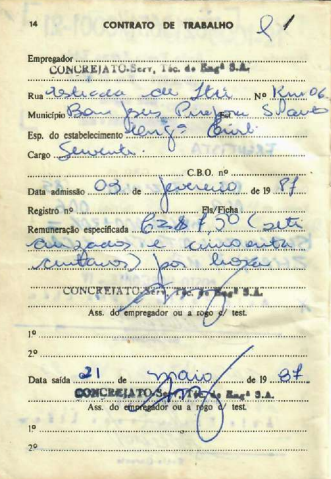 14 CONTRATO DE TRABALHO
Empregador
CONCREJATO-Serv, Téc. de Engª S.A.
Rua Estrada de Nº Km 06
Município Bom
Esp. do estabelecimento Engª Civil
Cargo Servente
C.B.O. nº
Data admissão 03 de fevereiro de 19 87
Registro nº Fls/Ficha
Remuneração especificada Cz$ 7,50 (sete
cruzados e cinquenta
centavos) por hora
CONCREJATO-Serv, Téc. de Engª S.A.
Ass. do empregador ou a rogo c/ test.
1º
2º
Data saída 21 de maio de 19 87
CONCREJATO-Serv, Téc. de Engª S.A.
Ass. do empregador ou a rogo c/ test.
1º
2º